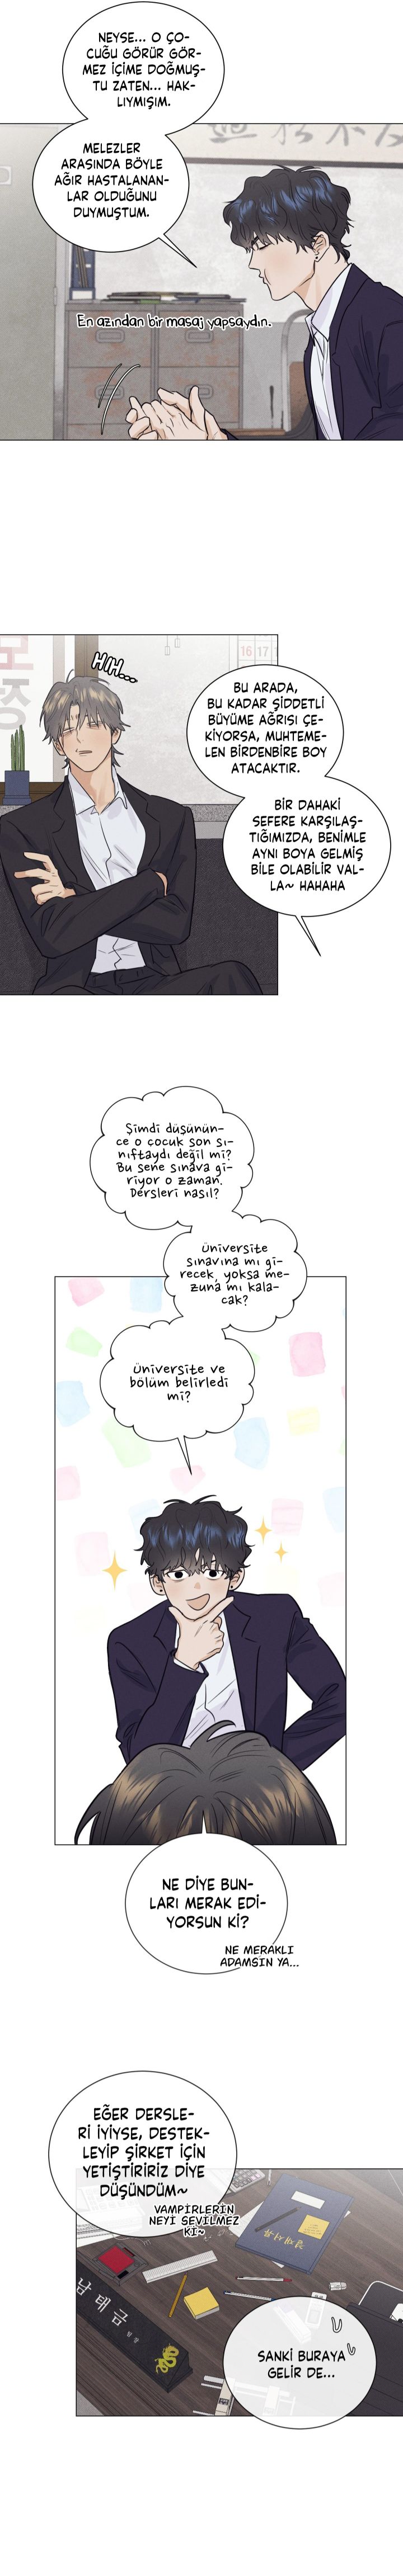 NEYSE... O ÇO-
CUĞU GÖRÜR GÖR-
MEZ İÇİME DOĞMUŞ-
TU ZATEN... HAK-
LIYMIŞIM.
MELEZLER
ARASINDA BÖYLE
AĞIR HASTALANAN-
LAR OLDUĞUNU
DUYMUŞTUM.
En azından bir masaj yapsaydın.
HIH...
16 17
BU ARADA,
BU KADAR ŞİDDETLİ
BÜYÜME AĞRISI ÇE-
KİYORSA, MUHTEME-
LEN BİRDENBİRE BOY
ATACAKTIR.
BİR DAHAKİ
SEFERE KARŞILAŞ-
TIĞIMIZDA, BENİMLE
AYNI BOYA GELMİŞ
BİLE OLABİLİR VAL-
LA~ HAHAHA
Şimdi düşünün-
ce o çocuk son sı-
nıftaydı değil mi?
Bu sene sınava gi-
riyor o zaman.
Dersleri nasıl?
Üniversite
sınavına mı gi-
recek, yoksa me-
zuna mı kala-
cak?
Üniversite ve
bölüm belirledi
mi?
NE DİYE BUN-
LARI MERAK EDİ-
YORSUN Kİ?
NE MERAKLI
ADAMSIN YA...
EĞER DERSLE-
Rİ İYİYSE, DESTEK-
LEYİP ŞİRKET İÇİN
YETİŞTİRİRİZ DİYE
DÜŞÜNDÜM~
VAMPİRLERİN
NEYİ SEVİLMEZ
Kİ~
남태금
SANKİ BURAYA
GELİR DE...